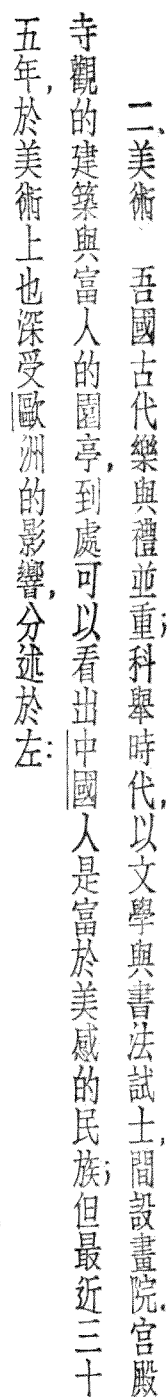 二、美術　吾國古代樂與禮並重；科舉時代，以文學與書法試士，間設畫院．宮殿
寺觀的建築與富人的園亭，到處可以看出中國人是富於美感的民族；但最近三十
五年，於美術上也深受歐洲的影響，分述於左：